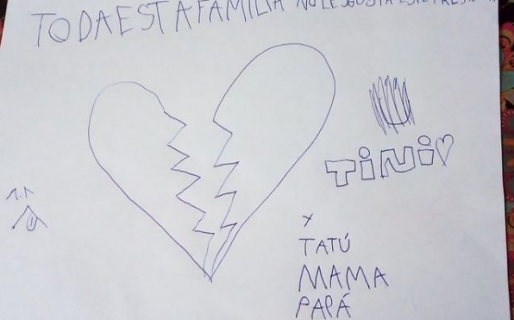 TODA ESTA FAMILIA NO LES GUSTA ESTE
TiNi
Y
TATÚ
MAMA
PAPÁ